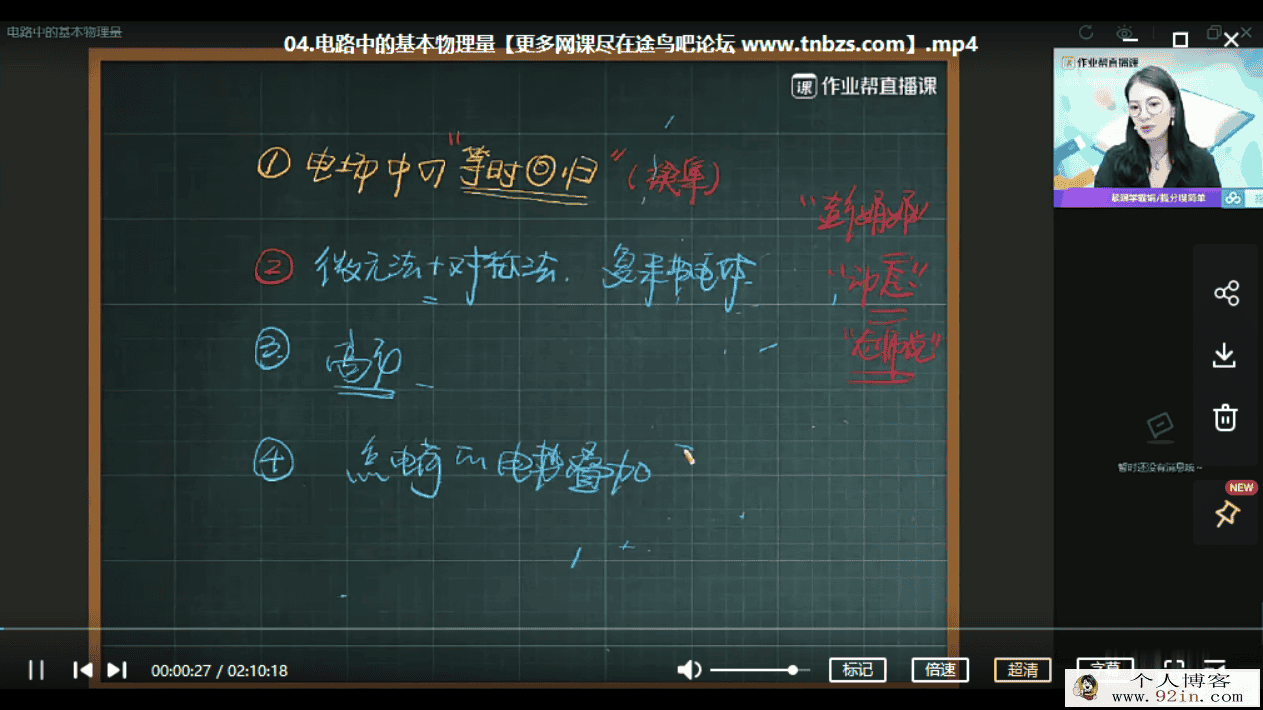 电路中的基本物理量
04.电路中的基本物理量【更多网课尽在途鸟吧论坛 www.tnbzs.com】.mp4
课 作业帮直播课
课 作业帮直播课
① 电场中的"等时回归"
② 微元法+对称法.
③ 高斯
④ 点电荷 电势叠加
"老师说"
暂时还没有消息哦~
NEW
00:00:27 / 02:10:18
标记
倍速
超清
字幕
个人博客
www.92in.com